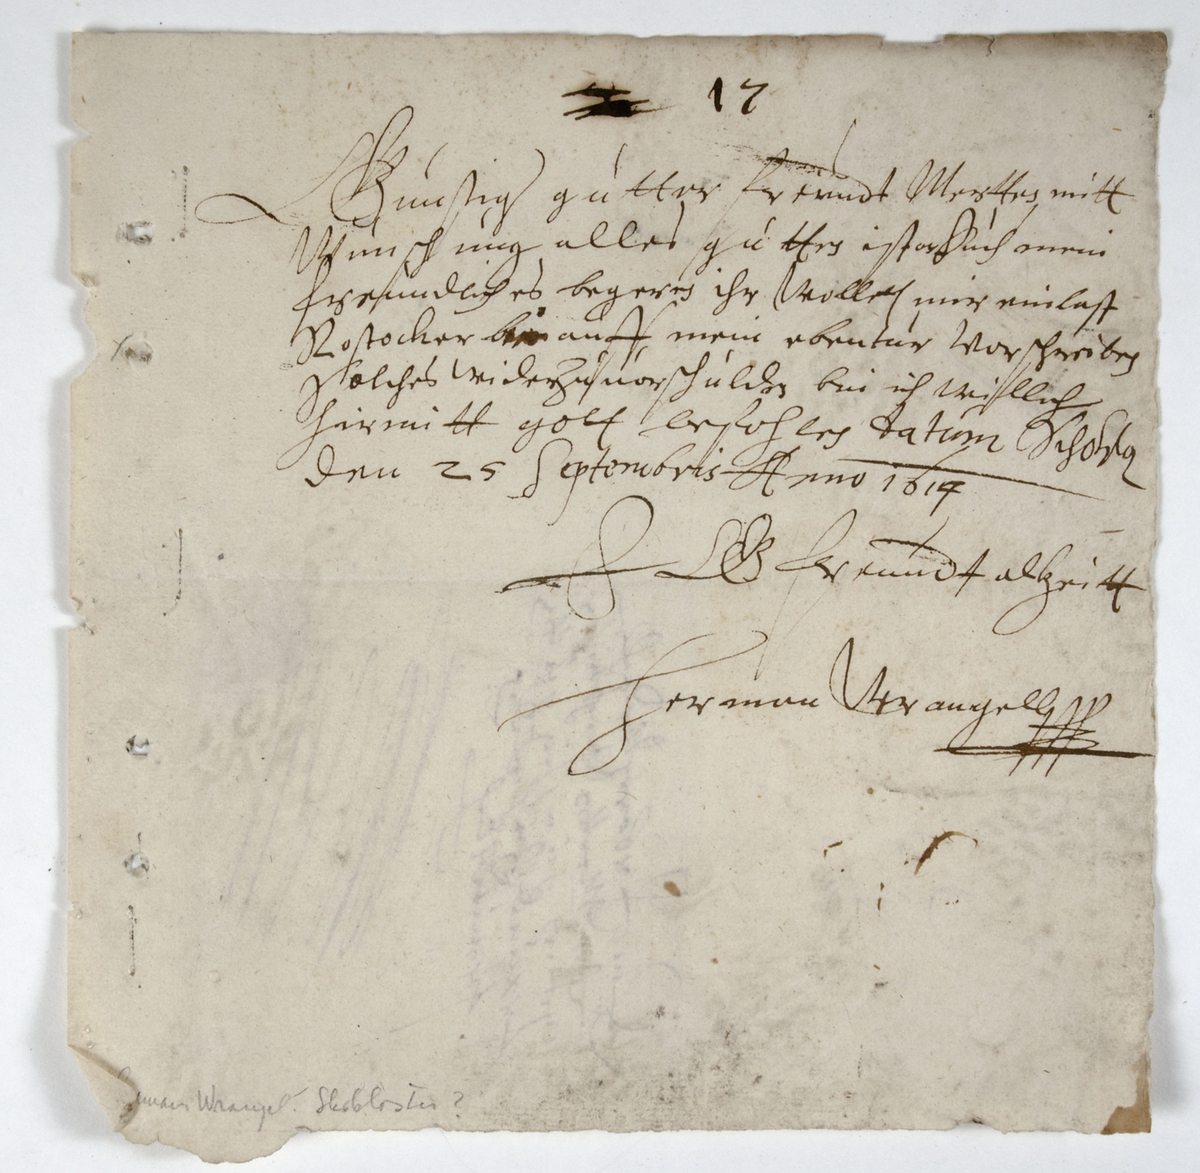 17
Gunstig gutter freundt Mertten mitt
Wunschung alles gutten ist an Euch mein
freundliches begeren ihr wollet mir ein last
Rostocker bir auff mein ebentur Vorschreiben
Solches wider zu uorschulden bin ich willich
hirmitt gott befohlen Datum
den 25 Septembris Anno 1614
E G freundt alzeitt
Herman Wrangell
Herman Wrangel. Skokloster?